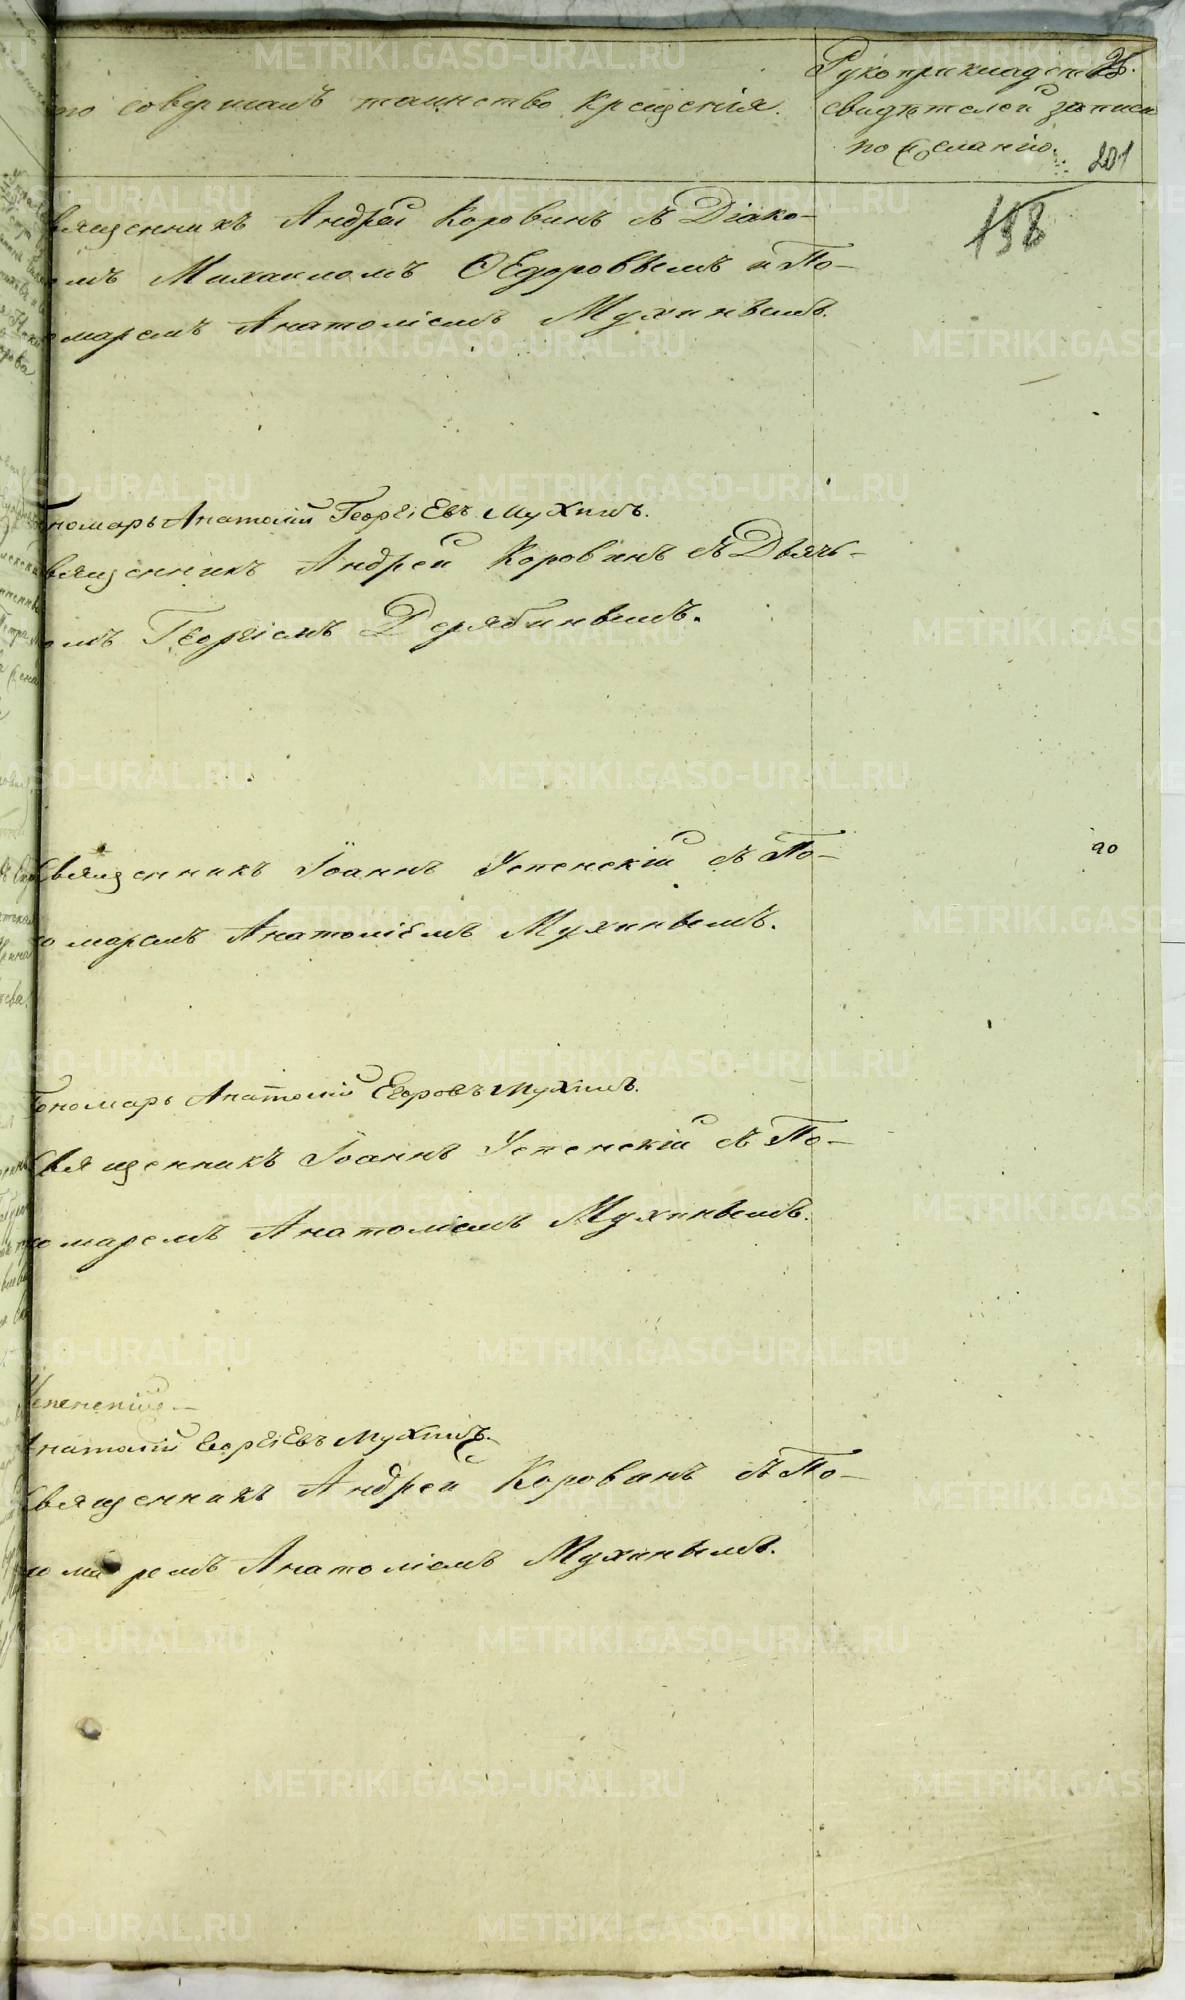 то совершалъ таинство крещенія.
Рукоприкладство
свидѣтелей записи
по желанію.
201
198
вященникъ Андрей Коровинъ съ Діако-
омъ Михаиломъ Ѳедоровымъ и По-
омаремъ Анатоліемъ Мухинымъ.
ономарь Анатолій Георгіевъ Мухинъ.
вященникъ Андрей Коровинъ съ Дьячь-
омъ Георгіемъ Дерябинымъ.
Священникъ Іоаннъ Успенскій съ По-
номаремъ Анатоліемъ Мухинымъ.
90
Пономарь Анатолій Егоровъ Мухинъ.
Священникъ Іоаннъ Успенскій съ По-
номаремъ Анатоліемъ Мухинымъ.
Успенскій
Анатолій Георгіевъ Мухинъ.
Священникъ Андрей Коровинъ съ По-
номаремъ Анатоліемъ Мухинымъ.
METRIKI.GASO-URAL.RU